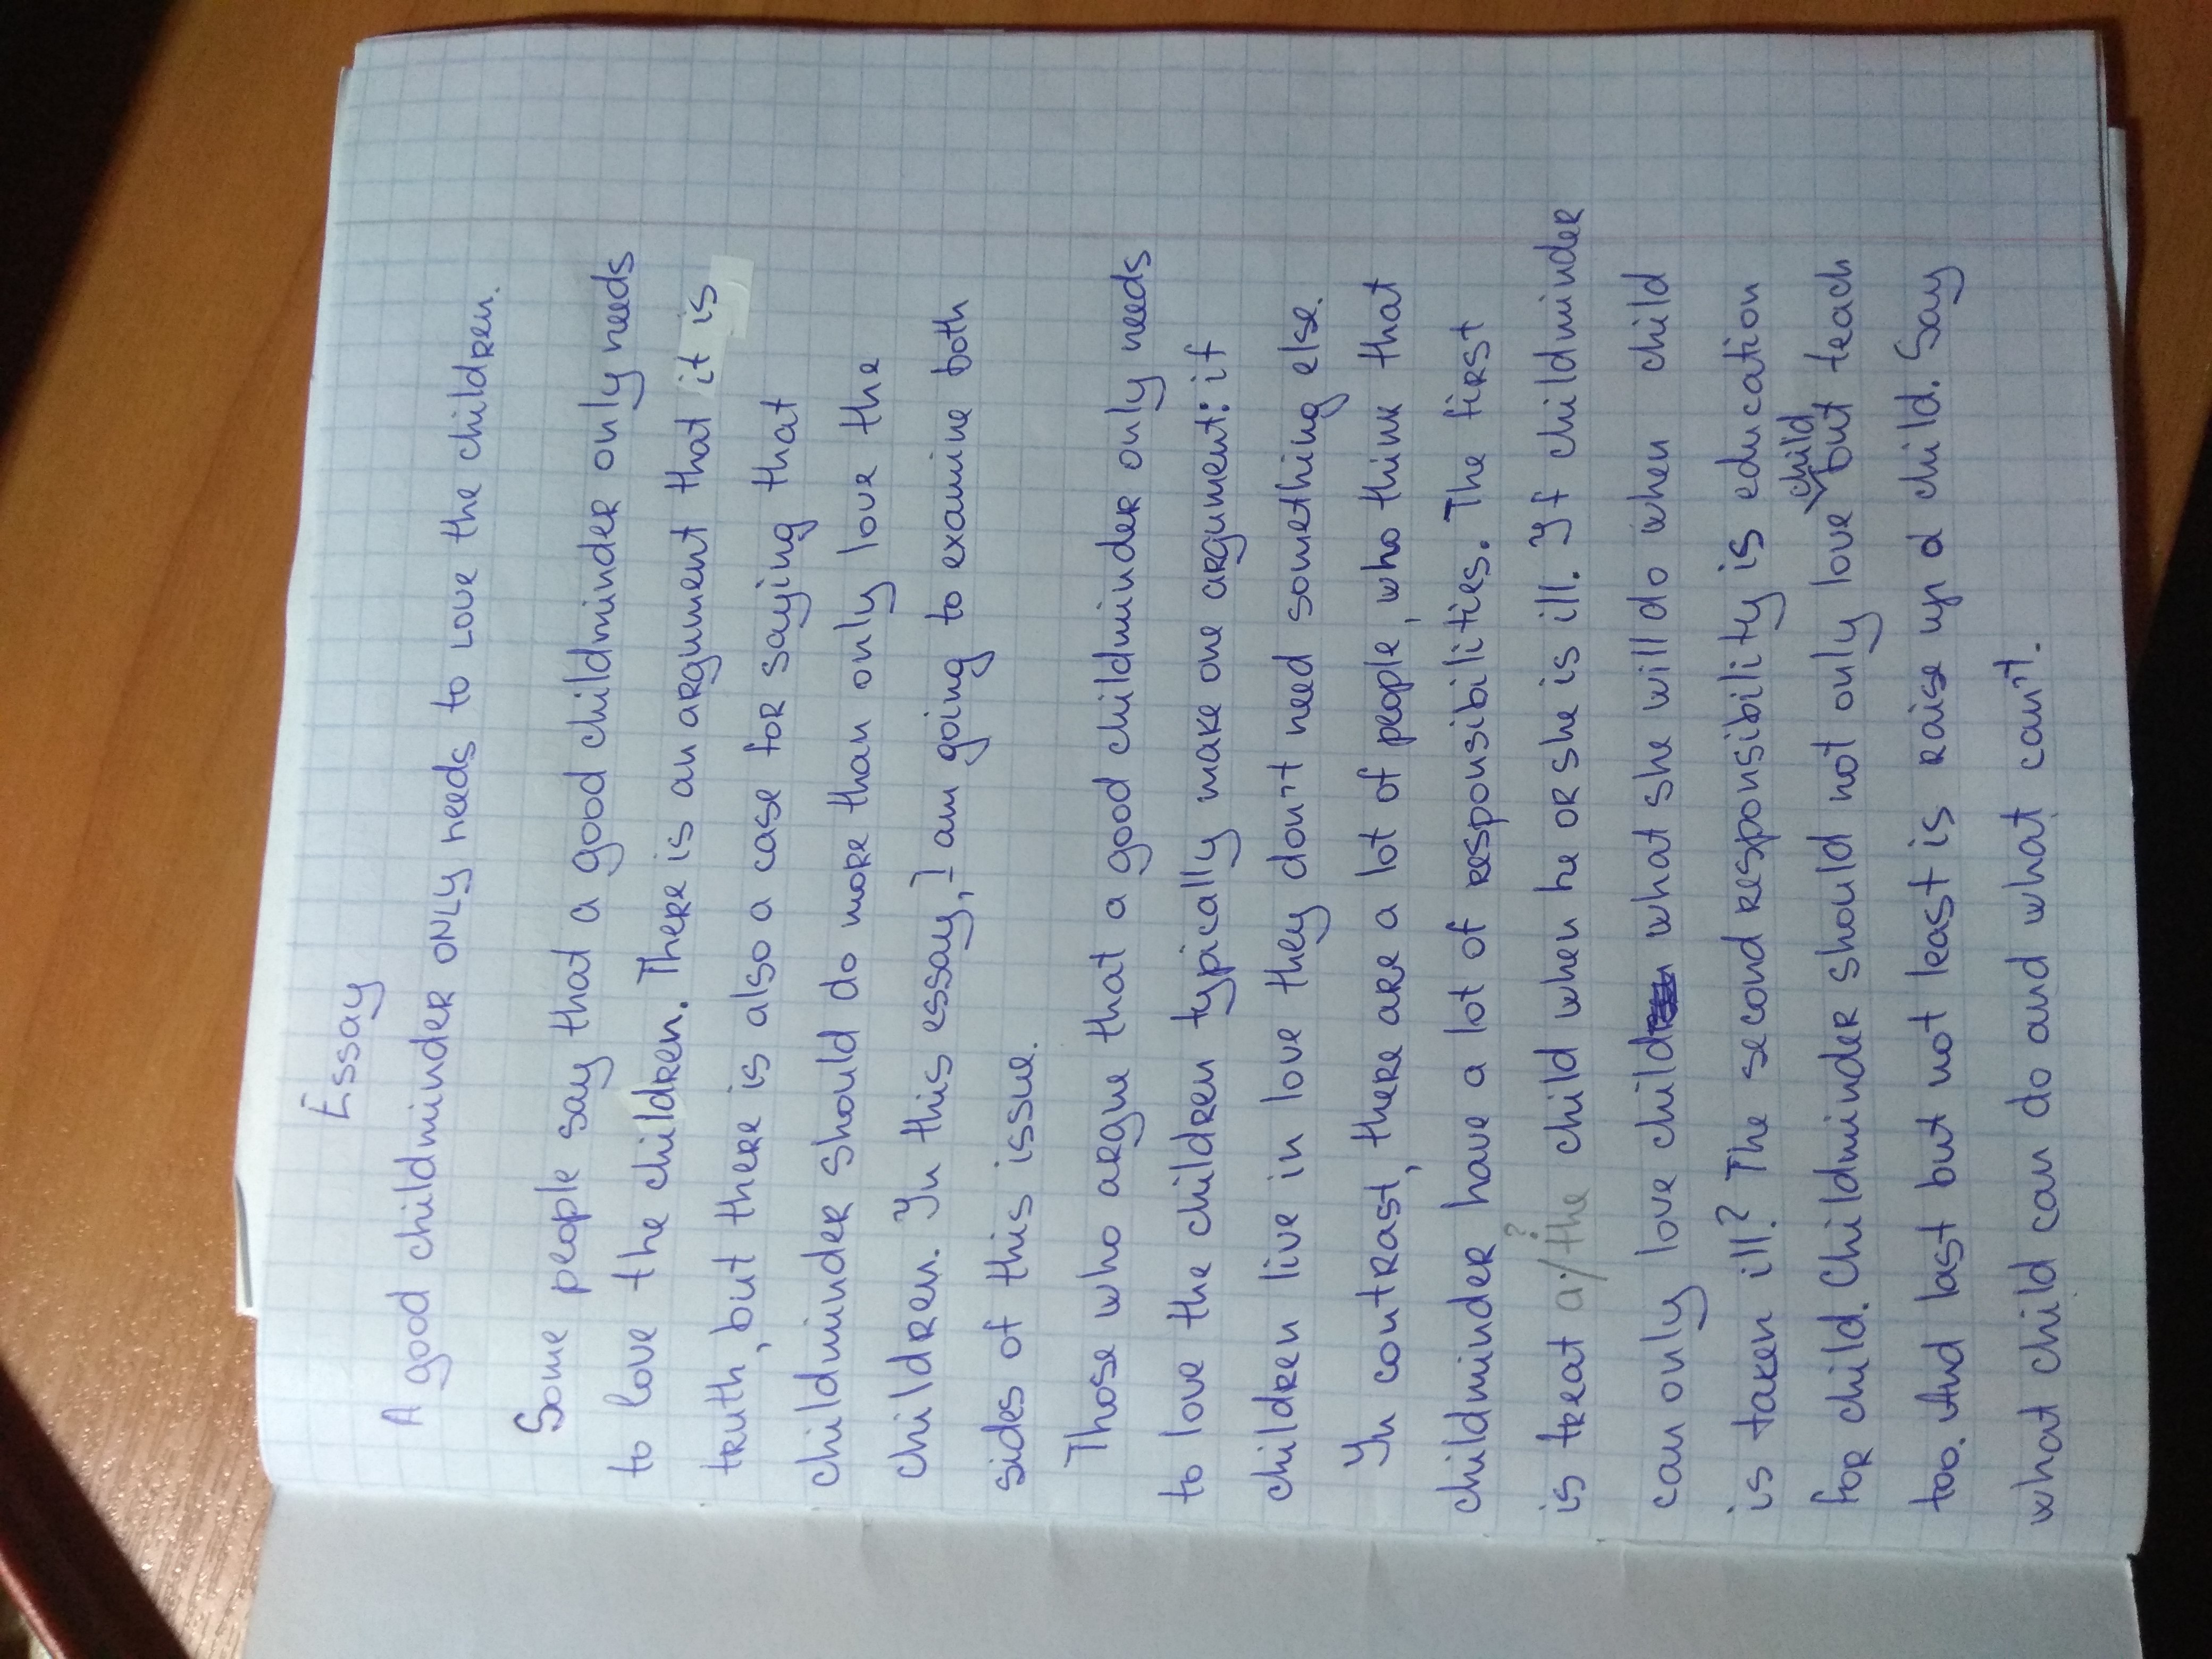 Essay
A good childminder ONLY needs to love the children.
Some people say that a good childminder only needs
to love the children. There is an argument that it is
truth, but there is also a case for saying that
childminder should do more than only love the
children. In this essay, I am going to examine both
sides of this issue.
Those who argue that a good childminder only needs
to love the children typically make one argument: if
children live in love they don't need something else.
In contrast, there are a lot of people, who think that
childminder have a lot of responsibilities. The first
is treat a/the? child when he or she is ill. If childminder
can only love child what she will do when child
is taken ill? The second responsibility is education
for child. Childminder should not only love child but teach
too. And last but not least is raise up a child. Say
what child can do and what can't.